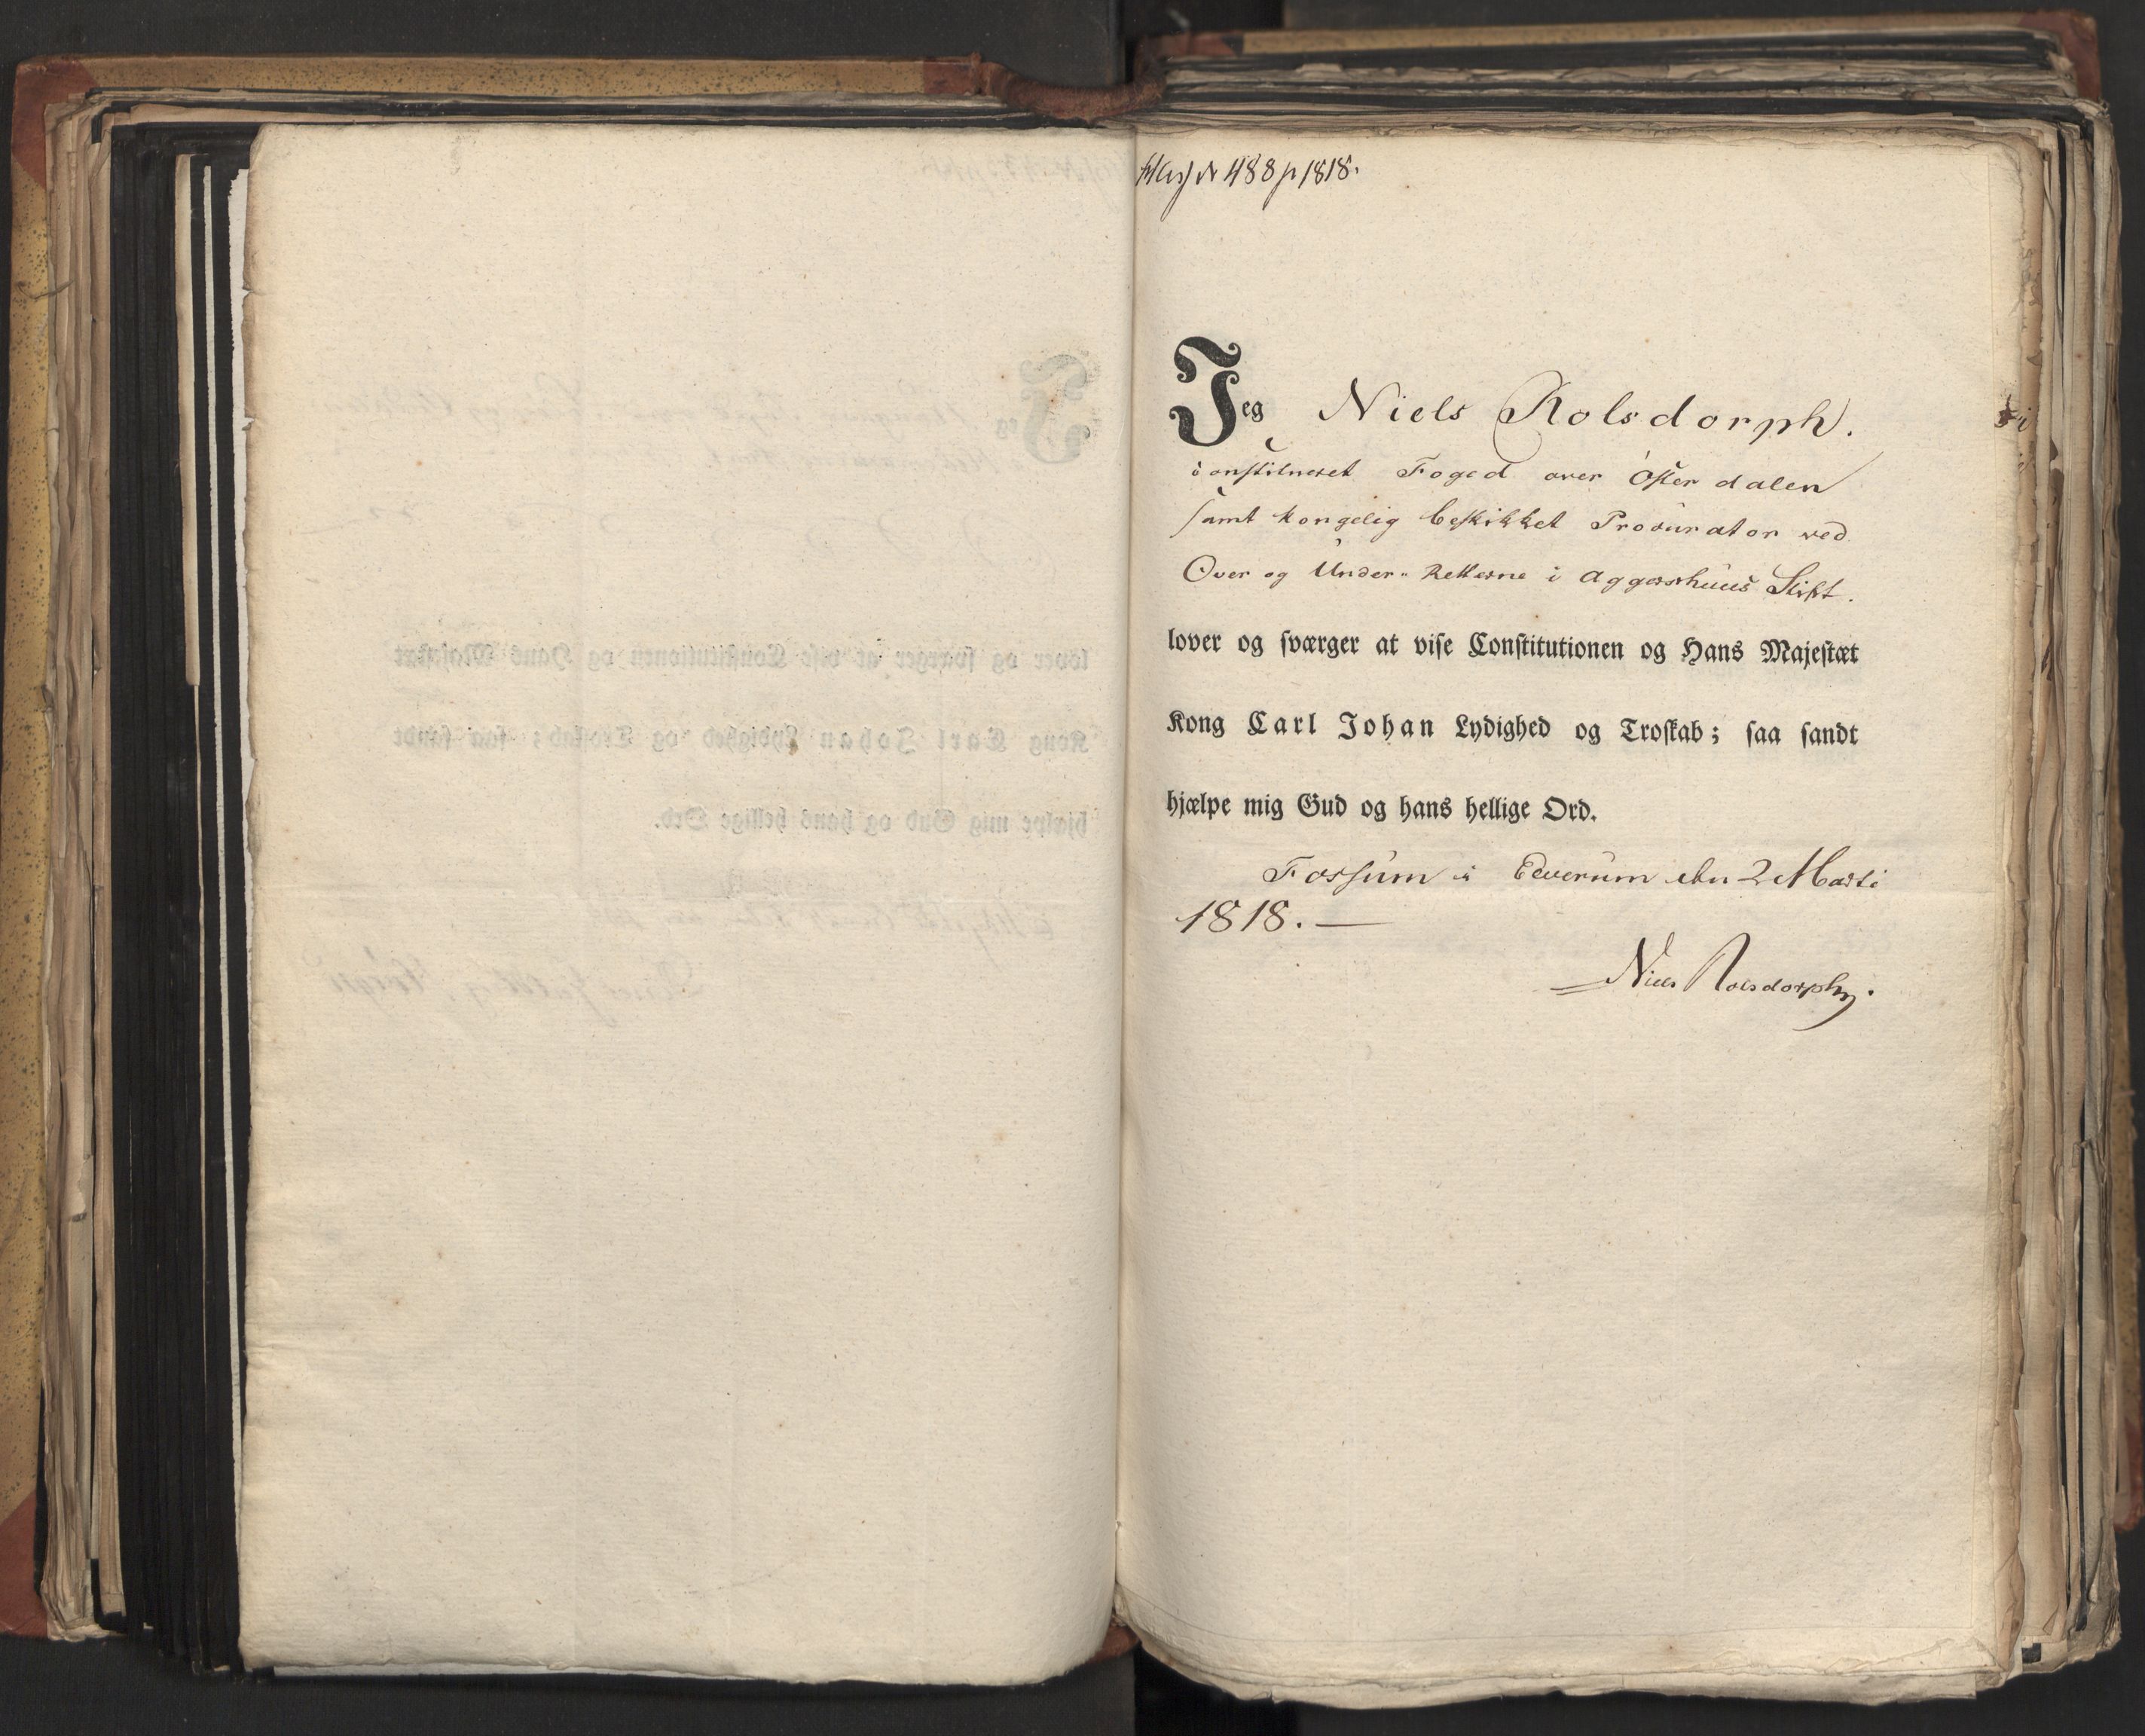 № 488 p 1818.
Jeg Niels Rolsdorph.
constitueret Foged over Østerdalen
samt kongelig beskikket Procurator ved
Over og Under-Retterne i Aggershuus Stift.
lover og sværger at vise Constitutionen og Hans Majestæt
Kong Carl Johan Lydighed og Troskab; saa sandt
hjælpe mig Gud og hans hellige Ord.
Fossum i Elverum den 2 Marti
1818. —
Niels Rolsdorph.